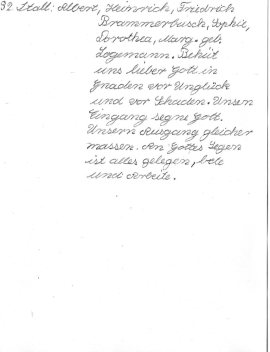 92 Stall: Albert, Heinrich, Friedrich
Brammerbusch, Sophie,
Dorothea, Marg. geb.
Logemann. Behüt
uns lieber Gott in
Gnaden vor Unglück
und vor Schaden. Unsern
Eingang segne Gott.
Unsern Ausgang gleicher
massen. An Gottes Segen
ist alles gelegen, bete
und Arbeite.